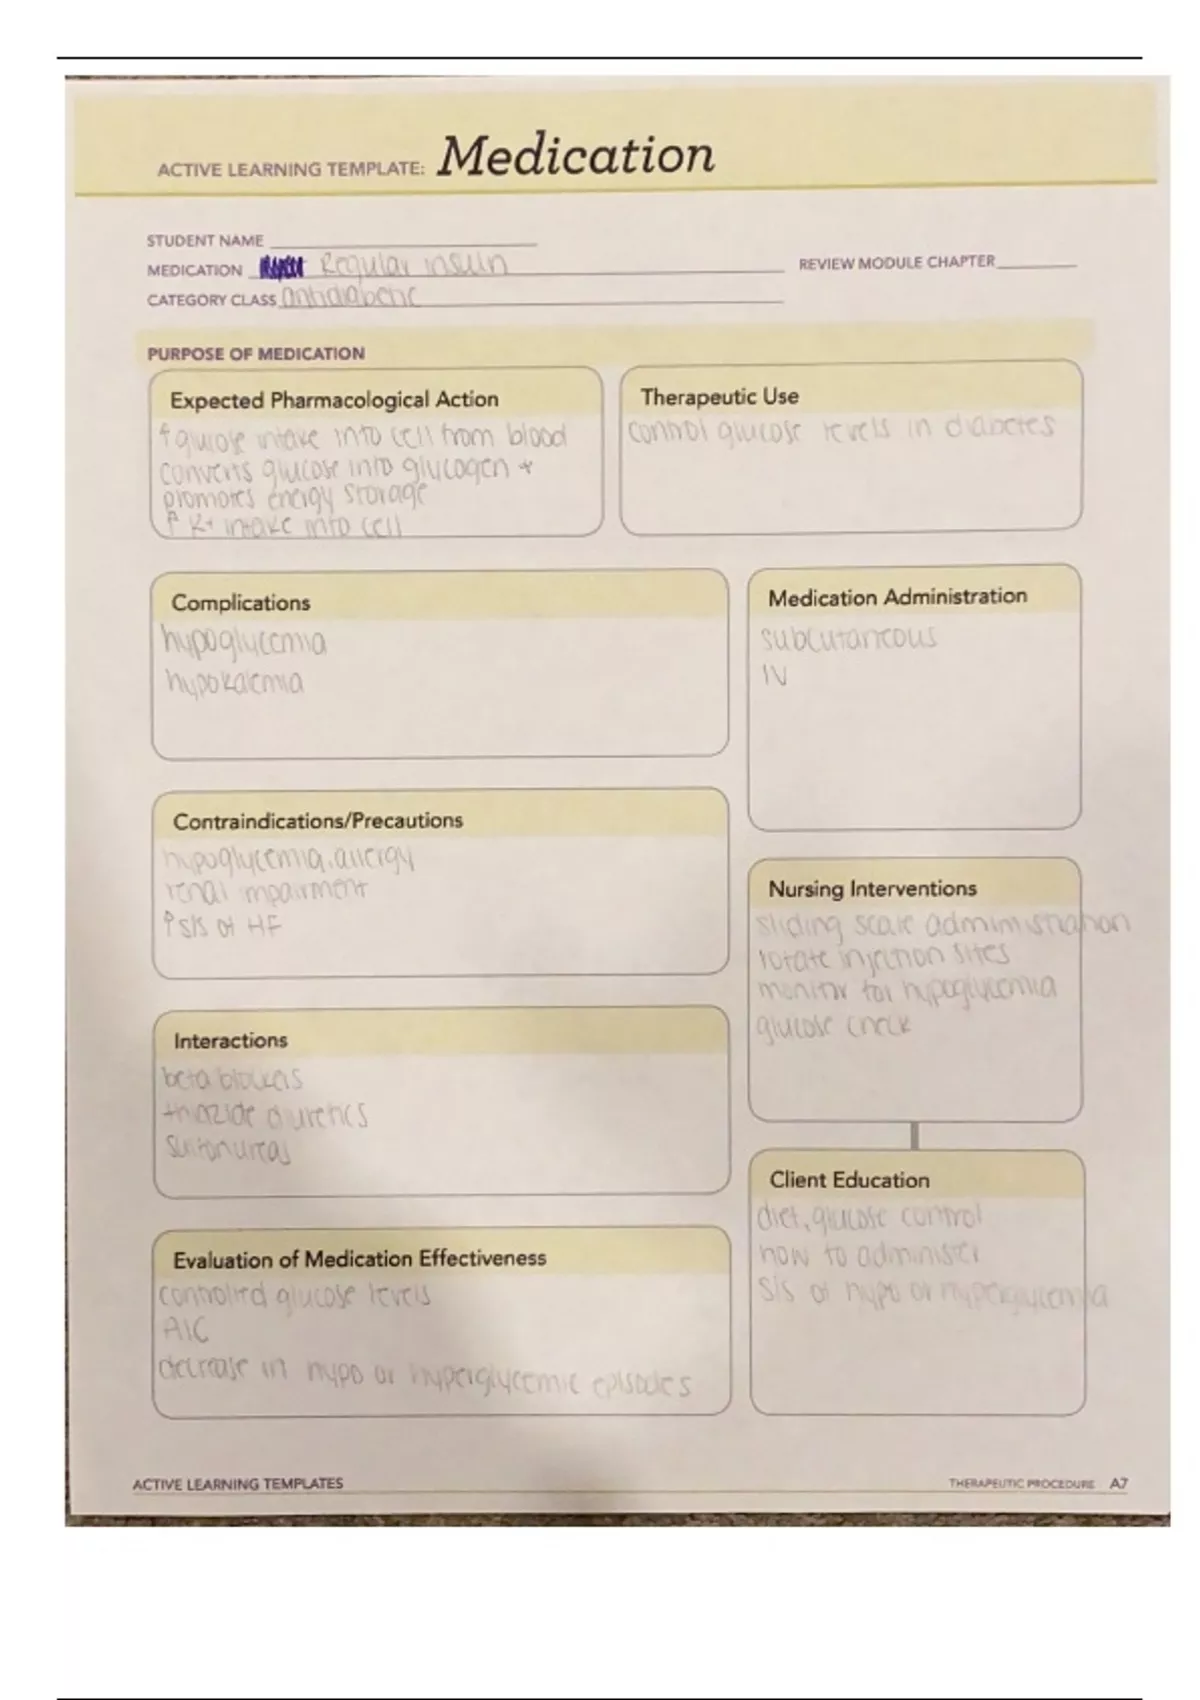 ACTIVE LEARNING TEMPLATE: Medication
STUDENT NAME
MEDICATION Regular insulin
REVIEW MODULE CHAPTER
CATEGORY CLASS antidiabetic
PURPOSE OF MEDICATION
Expected Pharmacological Action
↑ glucose intake into cell from blood
converts glucose into glycogen +
promotes energy storage
↑ K+ intake into cell
Therapeutic Use
control glucose levels in diabetes
Complications
hypoglycemia
hypokalemia
Medication Administration
subcutaneous
IV
Contraindications/Precautions
hypoglycemia, allergy
renal impairment
↑ s/s of HF
Nursing Interventions
sliding scale administration
rotate injection sites
monitor for hypoglycemia
glucose check
Interactions
beta blockers
thiazide diuretics
sulfonureas
Client Education
diet, glucose control
how to administer
s/s of hypo or hyperglycemia
Evaluation of Medication Effectiveness
controlled glucose levels
A1C
decrease in hypo or hyperglycemic episodes
ACTIVE LEARNING TEMPLATES
THERAPEUTIC PROCEDURE A7